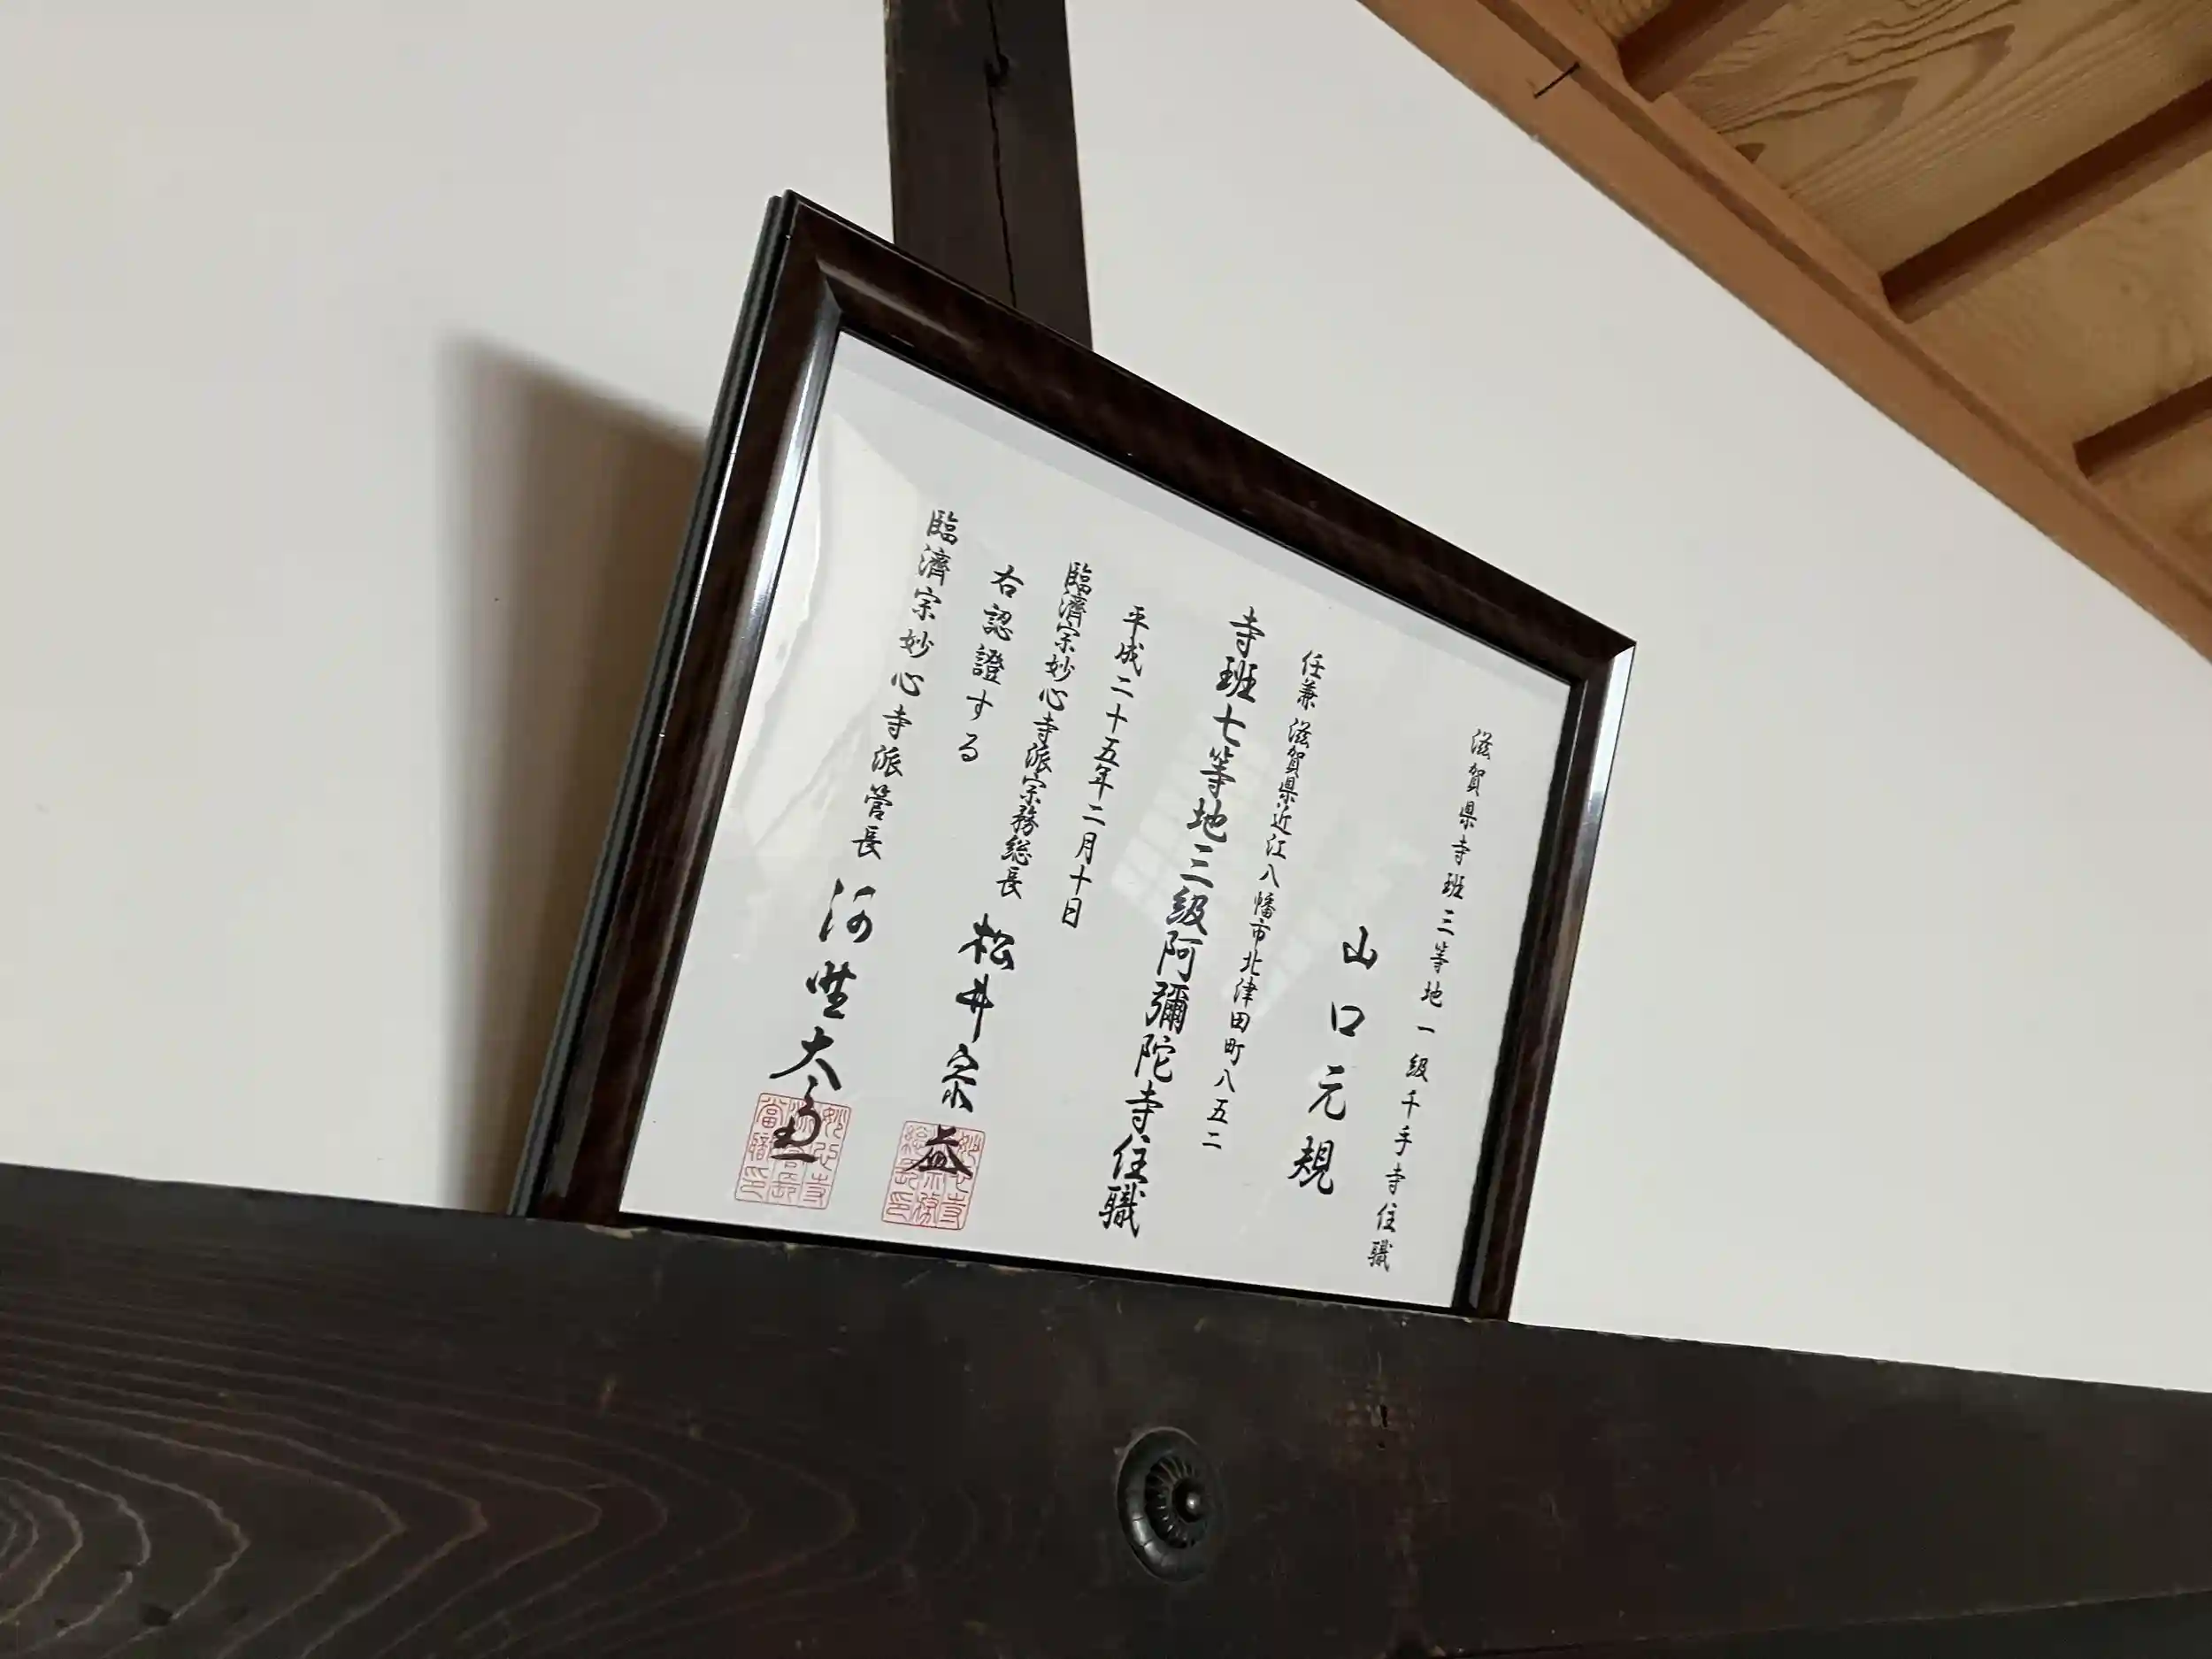 滋賀県寺班三等地一級千手寺住職
山口元規
任兼 滋賀県近江八幡市北津田町八五二
寺班七等地三級阿彌陀寺住職
平成二十五年二月十日
臨濟宗妙心寺派宗務総長 松井宗益
右認證する
臨濟宗妙心寺派管長 河野太通